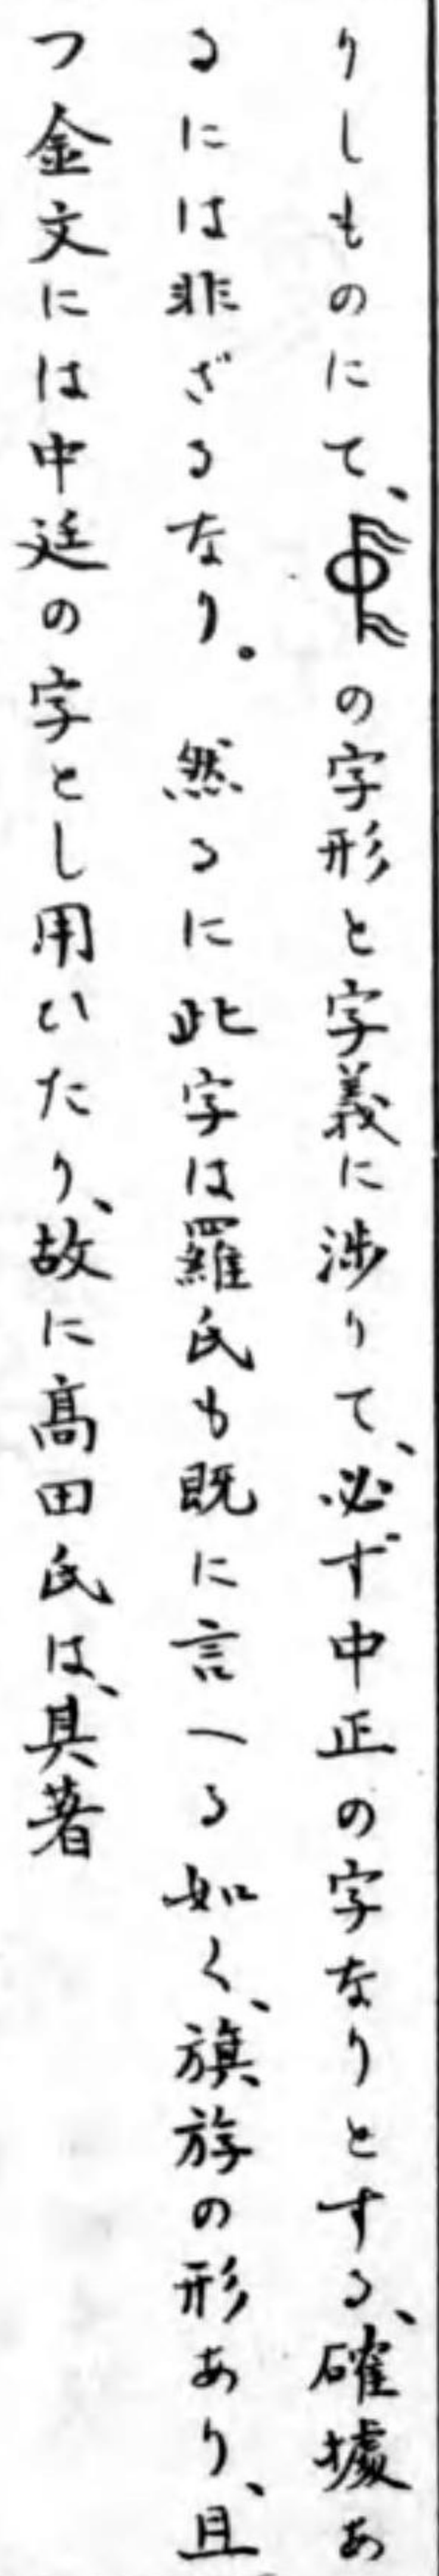 りしものにて、の字形と字義に渉りて、必ず中正の字なりとする、確據あ
るには非ざるなり。然るに此字は羅氏も既に言へる如く、旗斿の形あり、且
つ金文には中廷の字とし用いたり、故に髙田氏は、其著